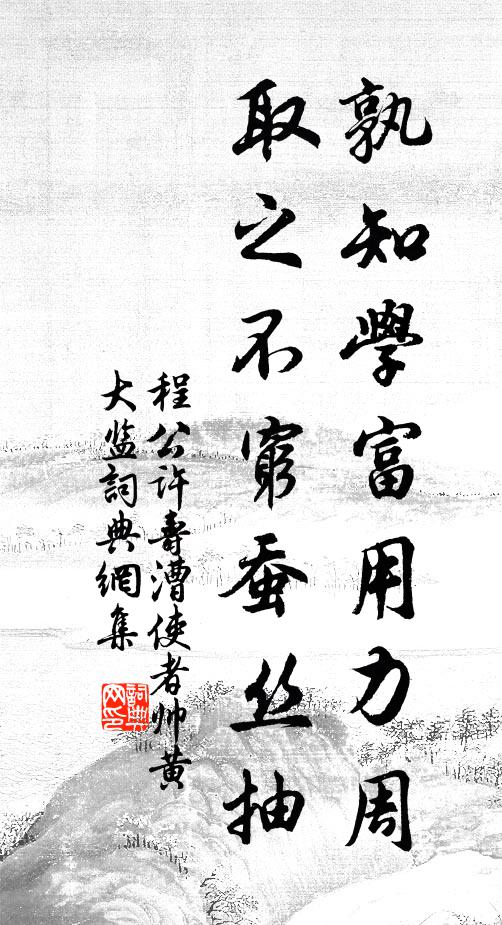 孰知學富用力周
取之不窮蚕丝抽
程公许壽漕使者帅黄
大监詞典網集
詞典网印